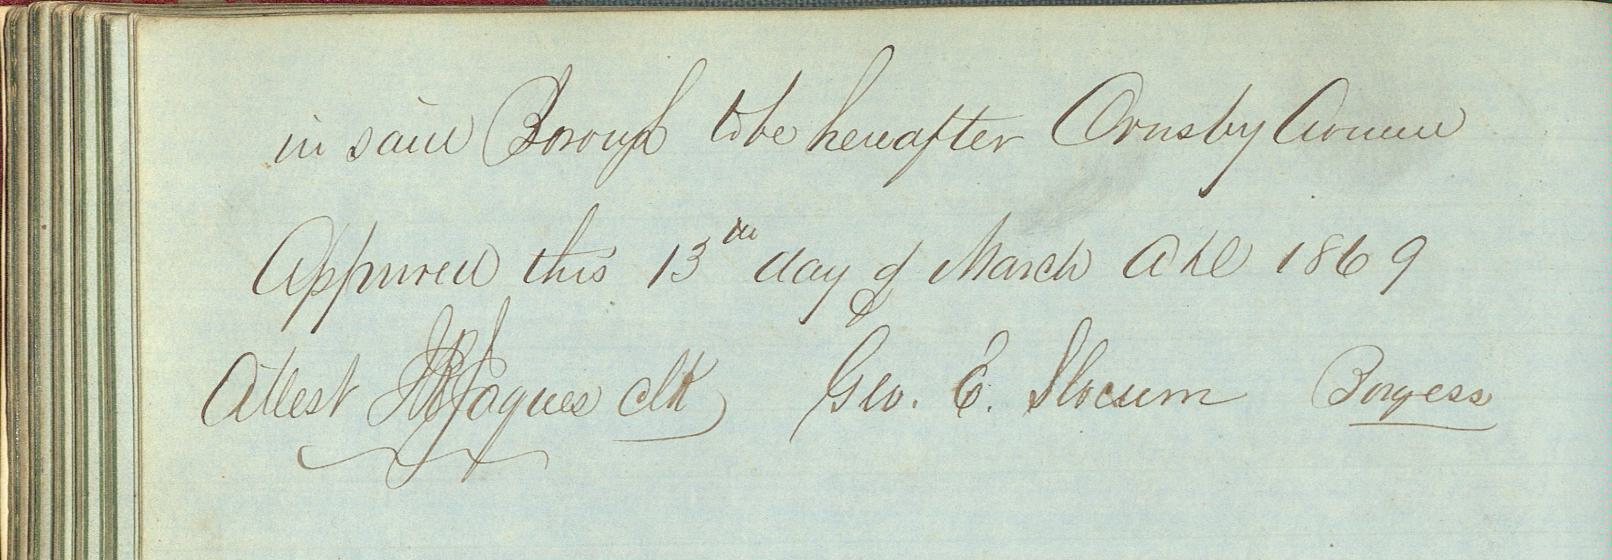 in said Borough to be hereafter Ormsby Avenue
Approved this 13th day of March AD 1869
Attest JB Jaques clk Geo. E. Slocum Borgess